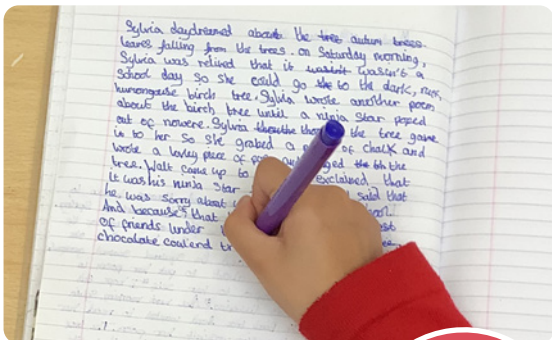 Sylvia daydreamed about the tree autum trees
leaves falling from the trees. on Saturday morning,
Sylvia was relived that it wasint wasin't a
School day so she could go the to the dark, nice,
humongouse birch tree. Sylvia wrote another poem
about the birch tree until a ninja star poped
out of nowere. Sylvia the tree gave
it to her so she grabed a of chalk and
wrote a lovley piece of and the the
tree. Walt came up to exclaimed that
it was his ninja star said that
he was sorry about
And because that
of friends under
chocolate coulerd tr